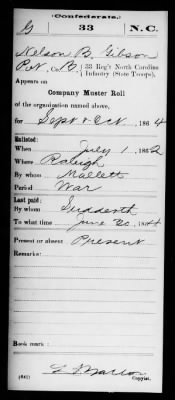 (Confederate.)
G 33 N.C.
Nelson B. Gibson
Pvt, Co. B, 33 Reg't North Carolina
Infantry (State Troops).
Appears on
Company Muster Roll
of the organization named above,
for Sept & Oct, 1864
Enlisted:
When July 1, 1862
Where Raleigh
By whom Mallett
Period War
Last paid:
By whom Sudderth
To what time June 30, 1864
Present or absent Present
Remarks:
Book mark:
L Marion
(642) Copyist.